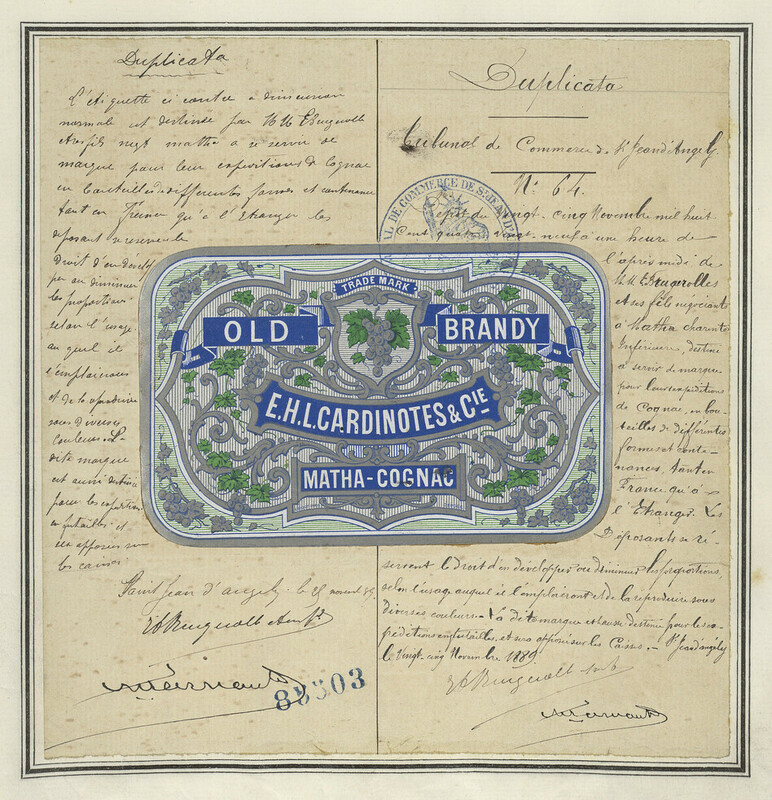 Duplicata
L'étiquette ci contre a dimension
normale est destinée par M M
et fils negt matha a servir de
marque pour leur expeditions de cognac
en bouteilles de differentes formes et contenance
tant en France qu'a l'Etranger les
deposant se reservent le
Droit d'en développer
ou diminuer
les proportions
selon l'usage
au quel il
l'emploieront
et de la reproduire
sous diverses
couleurs La
dite marque
est aussi destinée
pour les expeditions
en futailles et
sera apposée sur
les caisses
Saint Jean d'angely le 25 novembre 89
85503
Duplicata
Tribunal de Commerce de St Jean d'Angely
No 64.
TRIBUNAL DE COMMERCE DE ST JEAN D'
Dépôt du vingt-cinq Novembre mil huit
Cent quatre vingt-neuf à une heure de
l'après midi de
M.M.
et ses fils négociants
à Matha charente
Inférieure, destinée
à servir de marque
pour leurs expéditions
de Cognac, en bou-
teilles de différentes
formes et conte-
nances, tant en
France qu'à
l'Etranger. Les
Déposants se ré-
servent le droit d'en développer ou diminuer les proportions,
selon l'usage auquel ils l'emploieront et de la reproduire sous
diverses couleurs. La dite marque est aussi destinée pour les ex-
péditions en futailles, et sera apposée sur les Caisses. St Jean d'angely
le vingt-cinq Novembre 1889
TRADE MARK
OLD BRANDY
E.H.L.CARDINOTES & CIE
MATHA-COGNAC